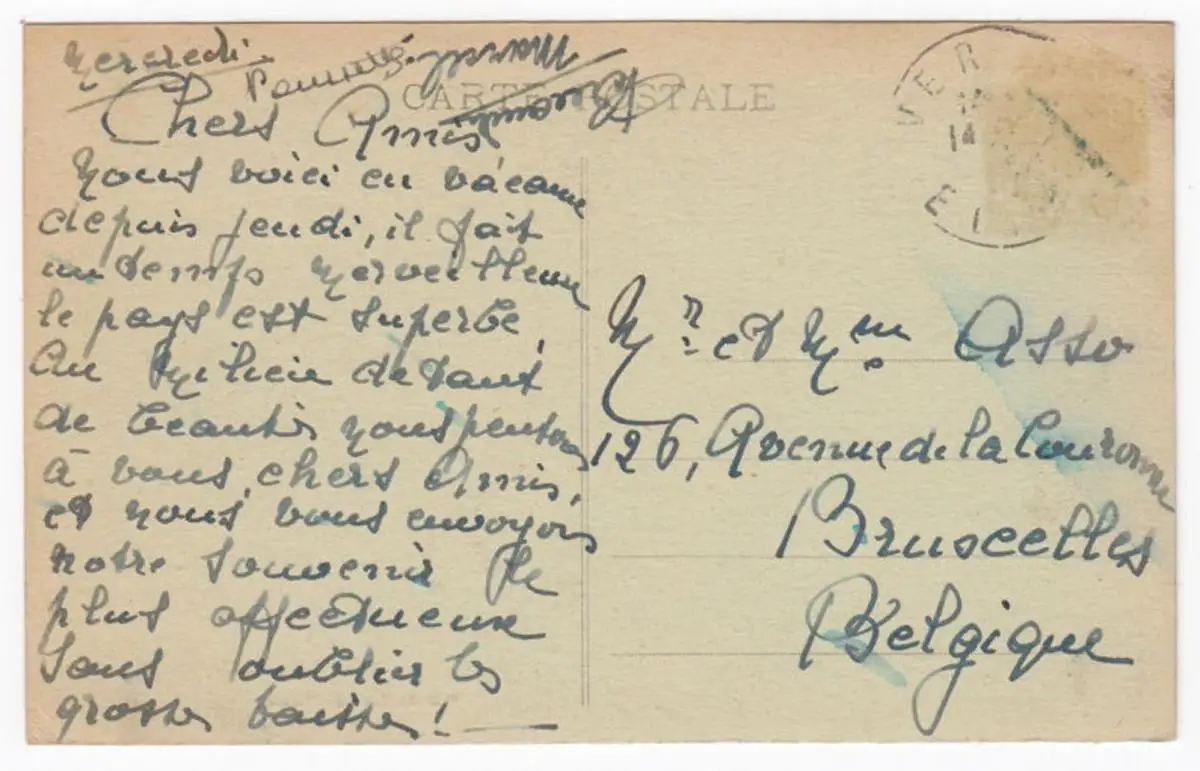 Mercredi
CARTE POSTALE
Chers Amis
Nous voici en vacance
depuis jeudi, il fait
un temps merveilleux
le pays est superbe,
Au milieu de tant
de beautés nous pensons
à vous, chers Amis,
et nous vous envoyons
notre souvenir le
plus affectueux
sans oublier les
grosses baises! —
VER
14
E 1
Mr et Mme Asso
126, Avenue de la Couronne
Bruxelles
Belgique